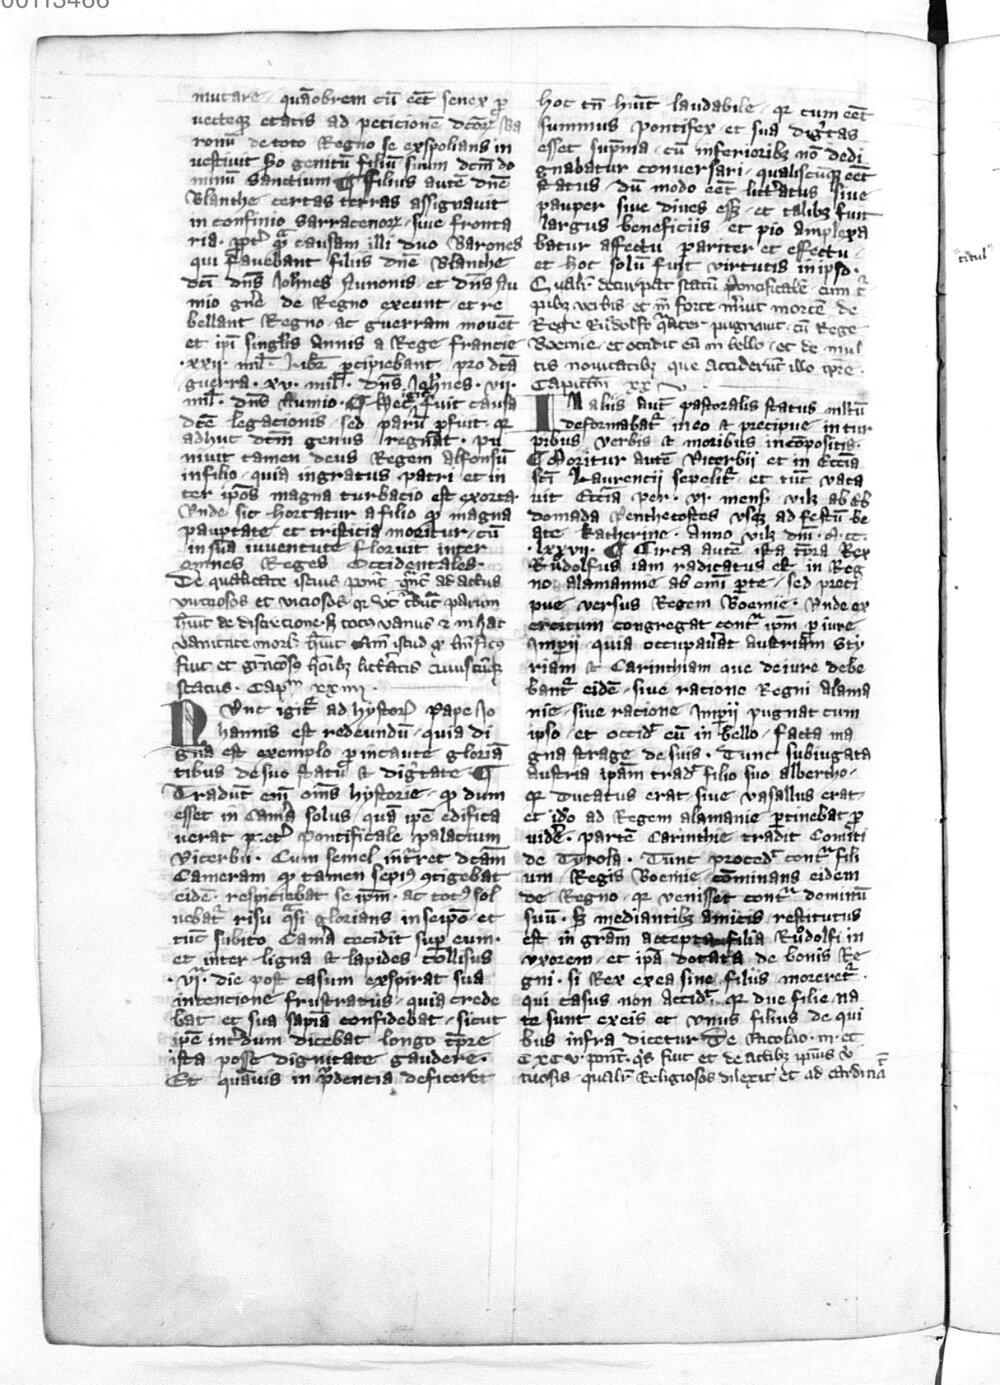 00113466
mutare. quāobrem cū eēt senex ꝓ
uecteqꝫ etatis ad peticionē dcōꝝ Ba
ronū de toto Regno se exspolians in
uestiuit genitū filiū suum dcm̄ do
minū Sanctium ¶ Filiis autē dn̄e
Blanche certas terras assignauit
in confinio Sarracenoꝝ siue fronta
ria. ꝓpt᷑ causam illi duo Barones
qui fauebant filiis dn̄e Blanche
dc̄i dn̄s Joh̄nes Nunonis et dn̄s Nu
mio gn̄e de Regno exeunt et re
bellant Regno ac guerram mouēt
et ip̄i singl̄is Annis a Rege Francie
.xxii. mil̄. libr̄ ꝑcipiebant pro dc̄a
guerra .xv. mil̄. dn̄s Joh̄nes .vii.
mil̄. dn̄s Numio. ¶ Hec fuit causa
dc̄e legacionis sed parū ꝓfuit. qꝛ
adhuc dcm̄ genus regnat. pu
niuit tamen deus Regem alfonsū
in filio quia ingratus patri et in
ter ip̄os magna turbacio est exorta
Vnde sic hortatur a filio magna
pauꝑtate et tristicia moritur cū
in sua iuuentute floruit inter
omnes Reges Occidentales.
De qualitate istius pont̄ ad actus
virtuosos et viciosos parum
h̄uit de discrecione totus vanus et in hac
vanitate h̄uit istud
fuit et litt̄atis cuiuscūqꝫ
status. Cap̄m xxiiii.
Nunc igit᷑ ad hystor̄ Pape Jo
hannis est redeundū quia di
gna est exemplo ꝓ incaute gloriā
tibus de suo statu et dig̅tate ¶
Tradūt eīn om̄s hystorie dum
esset in Cam̄a solus quā ip̄e edifica
uerat Pontificale palacium
Viterbii. Cum semel intraret dc̄am
Cameram tamen sepiꝰ ꝯtigebat
eidē. respiciebat se ip̄m. ac totꝰ sol
uebat᷑ risu q̄si glorians in seipō et
tūc subito Cam̄a cecidit suꝑ eum.
et inter ligna et lapides collisus
.viᵃ. die post casum exspirat sua
intencione frustratus quia crede
bat et sua sapiā confidebat sicut
ip̄e int̄dum dicebat longo tp̄re
ista posse dignitate gaudere.
Et quāuis in prudencia deficeret
hoc tn̄ h̄uit laudabile. qꝛ cum eēt
summus Pontifex et sua dig̅tas
esset sup̄ma. cū inferioribꝫ nō dedi
gnabatur conuersari. qualiscūqꝫ eēt
status. dū modo eēt litt̄atus siue
pauper siue diues et talibꝫ fuit
largus beneficiis et pio amplexa
batur affectu pariter et effectu.
et hoc solū fuit virtutis in ipso.
Qualit᷑ deturpat statū Pontificalē cum t᷑
pibꝫ verbis et forte mortē de
Rege Rudolfo pugnauit cū Rege
Boemie et occidit eū in bello et de mul
tis nouitatibꝫ que acciderūt illo tp̄re.
Capitl̄m xxv.
In aliis aut̄ pastoralis status ml̄tū
deformabat᷑ in eo et precipue in tur
pibus verbis et moribus incōpositis.
¶ Moritur autē Viterbii et in Ecc̄ia
sc̄i Laurencii sepelit᷑ et tūc vaca
uit Ecc̄ia per .vi. mens̄ vilꝫ ab eb
domada Penthecostes vsqꝫ ad festū be
ate Katherine. Anno vilꝫ dn̄i .M.cc.
.lxxvii. ¶ Circa autē ista tp̄ra Rex
Rudolfus iam radicatus est in Reg
no alamannie ab om̄i ꝑte sed preci
pue versus Regem Boemie. Vnde ex
ercitum congregat cont᷑ ip̄m ꝓ iure
Imperii quia occupauerat austriam Sty
riam et Carinthiam que de iure debe
bant᷑ eidē siue racione Regni alama
nie siue racione Imperii pugnat cum
ipso et occid᷑ eū in bello facta ma
gna strage de suis. Tunc subiugata
austria ipsam trad᷑ filio suo albertho.
qꝛ Ducatus erat siue vasallus erat
et ido ad Regem alamanie ꝑtinebat ꝓ
uider̄. partē Carinthie tradit Comiti
de Tyrola. Tunc proced᷑ cont᷑ fili
um Regis Boemie cōminans eidem
de Regno qꝛ venisset cont᷑ dominū
suū. Sꝫ mediantibꝫ amicis restitutus
est in gr̄am accepta filia Rudolfi in
vxorem et ip̄a dotata de bonis Re
gni. si Rex ex ea sine filiis moreret᷑.
qui casus non accid᷑. qꝛ due filie na
te sunt ex eis et vnus filius de qui
bus infra dicetur De Nicolao .iii. et
CXCV. pont̄. fuit et de actibꝫ ip̄ius v᷑
tuosis. qualit᷑ Religiosos dilexit et ad cardina
"titul"